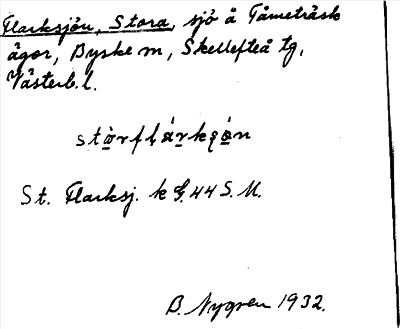 Flarksjön, Stora, sjö å Tåmeträsk
ägor, Byske sn, Skellefteå tg,
Västerb. l.
St. Flarksj. k G. 44 S. M.
B. Nygren 1932.